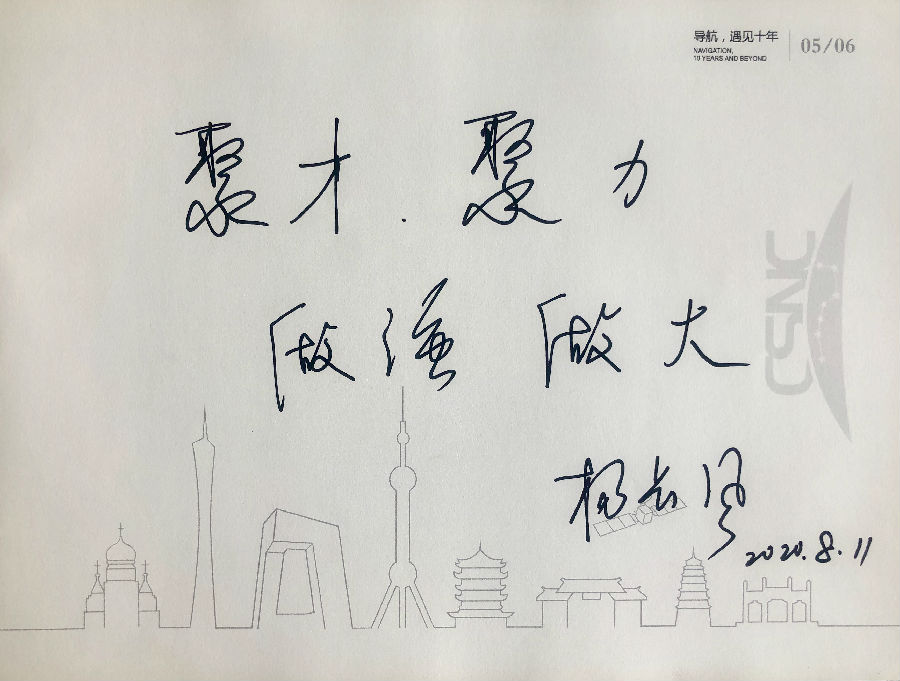 导航，遇见十年
NAVIGATION,
10 YEARS AND BEYOND
05/06
聚才.聚力
做强 做大
杨长风
2020.8.11
CSNC